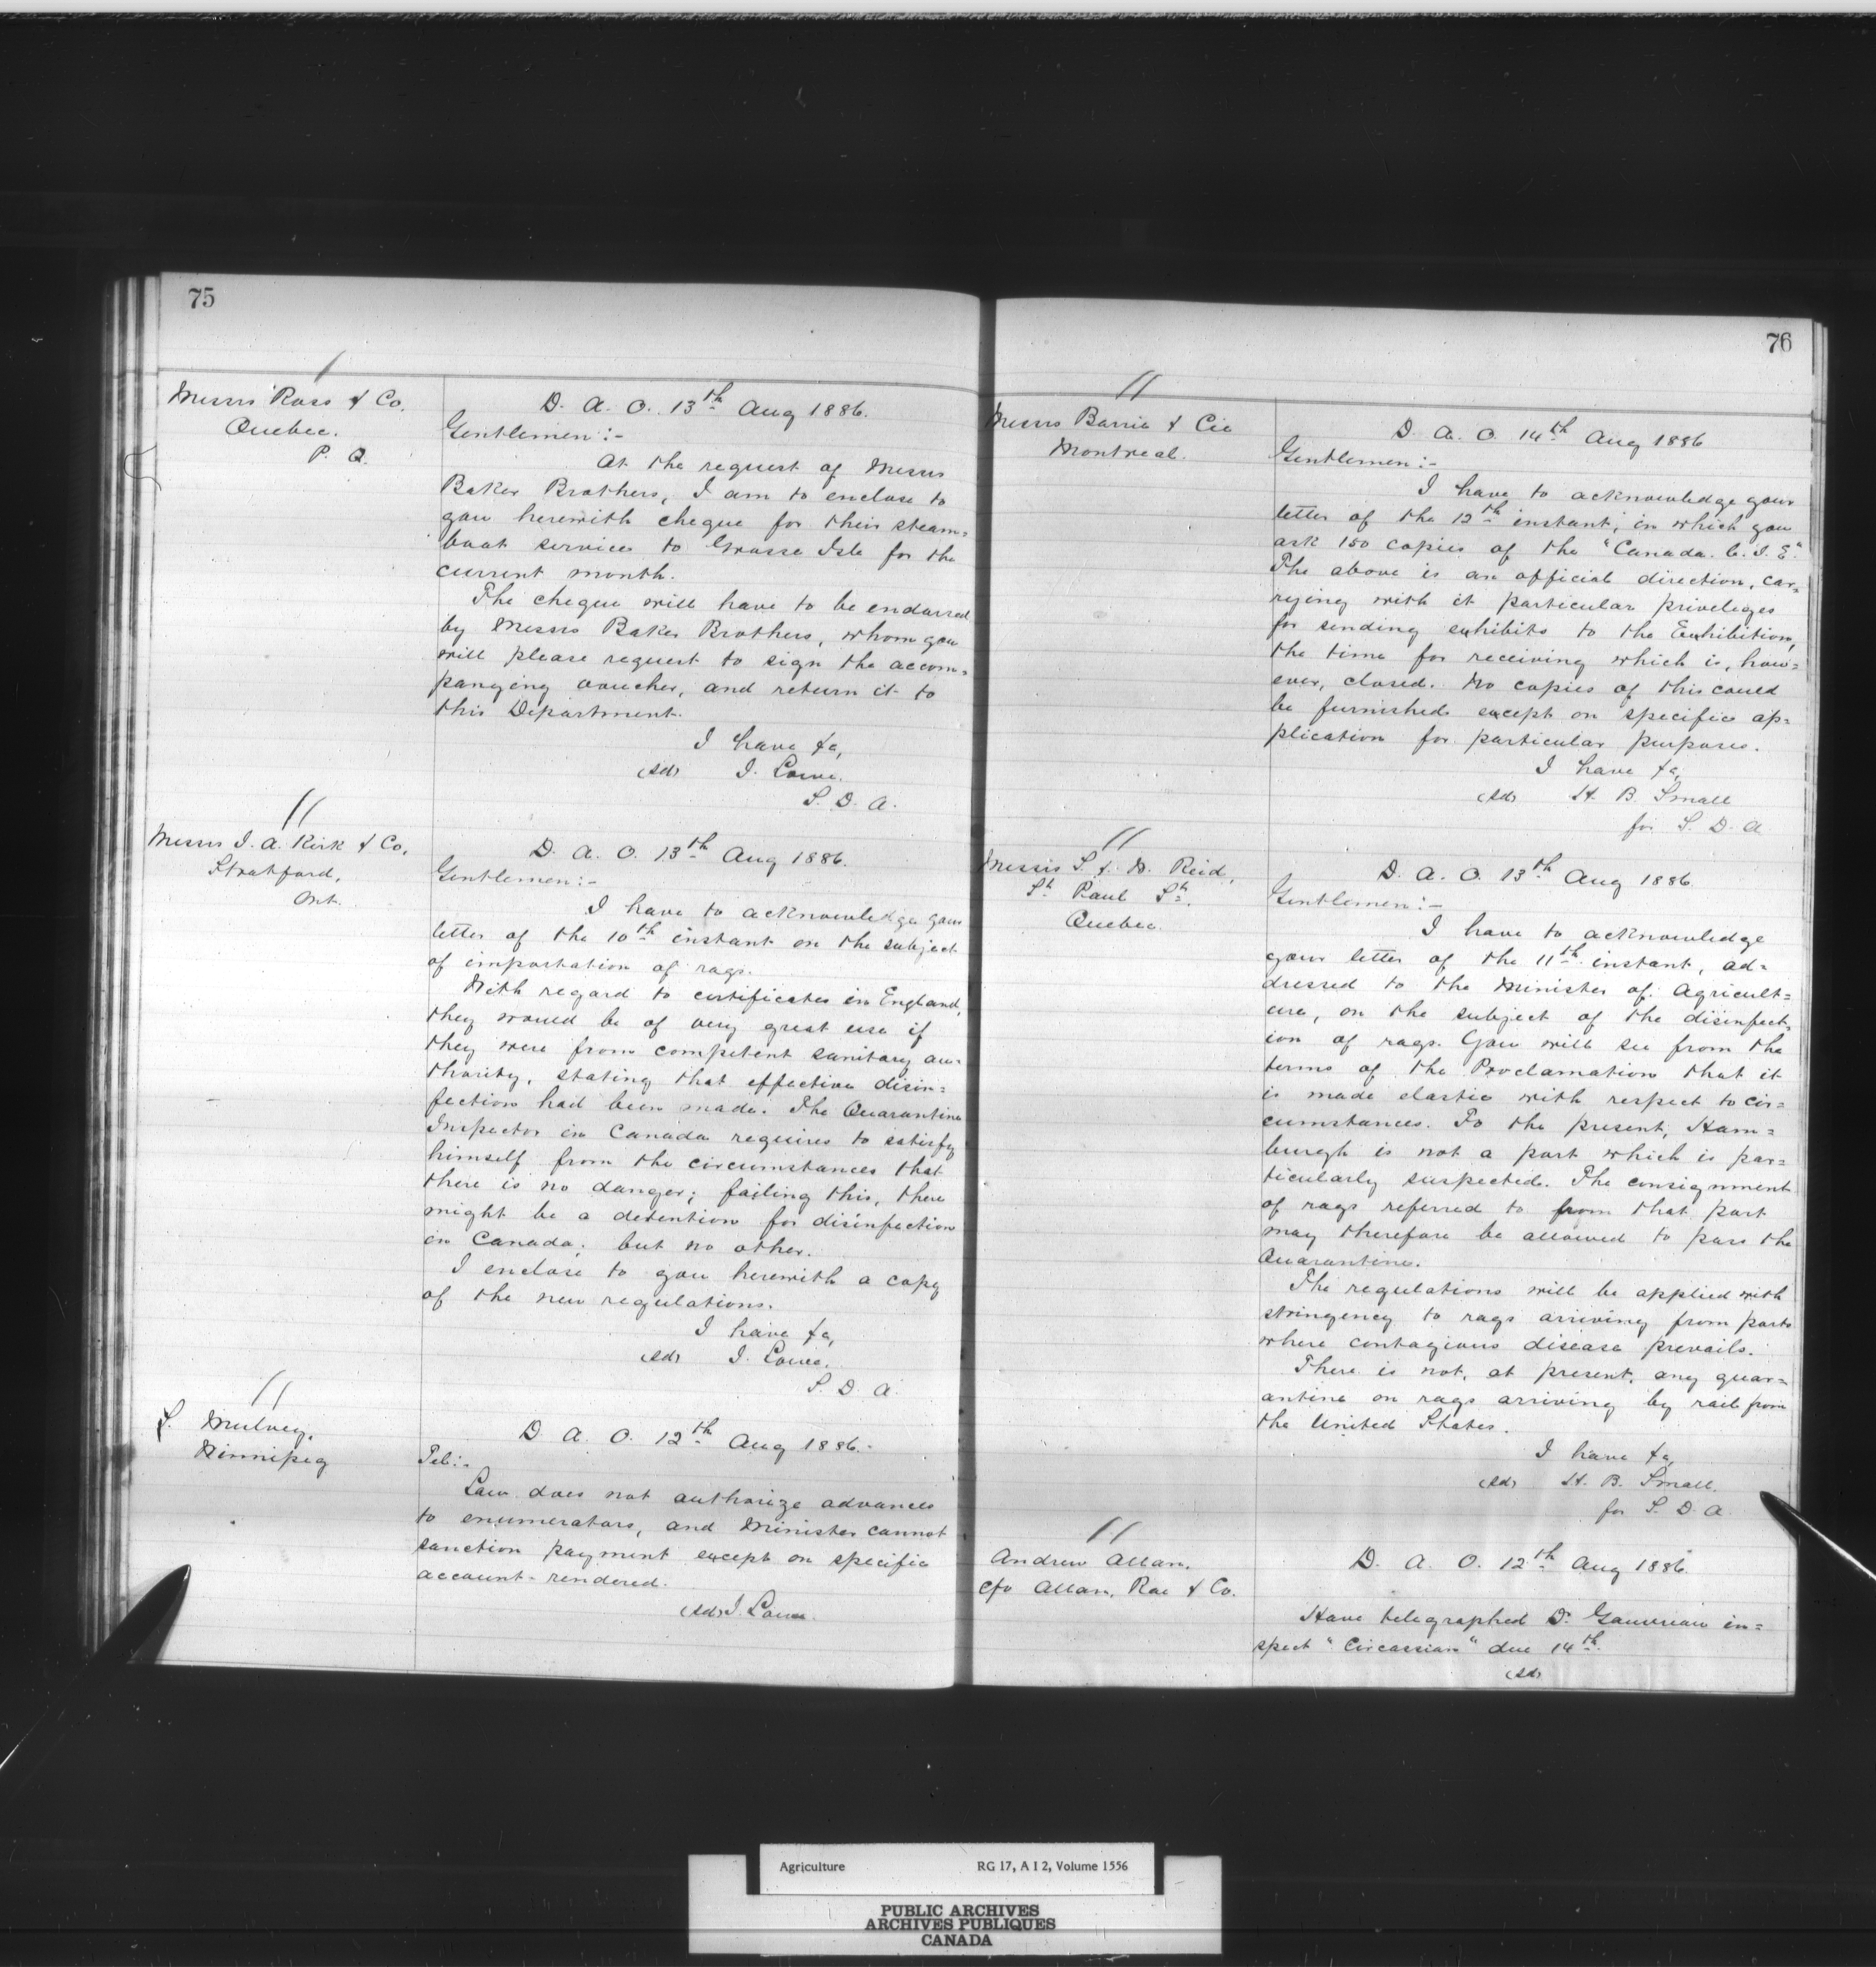 75
Messrs Ross & Co.
Quebec.
P. Q.
D. A. O. 13th Aug 1886.
Gentlemen:-
At the request of Messrs
Baker Brothers, I am to enclose to
you herewith cheque for their steam=
boat service to Grosse Isle for the
current month.
The cheque will have to be endorsed
by Messrs Baker Brothers, whom you
will please request to sign the accom=
panying voucher, and return it to
this Department.
I have &c,
(sd) J. Lowe.
S. D. A.
Messrs J. A. Kirk & Co.
Stratford,
Ont.
D. A. O. 13th Aug 1886.
Gentlemen:-
I have to acknowledge your
letter of the 10th instant on the subject
of importation of rags.
With regard to certificates in England,
they would be of very great use if
they were from competent sanitary au=
thority, stating that effective disin=
fection had been made. The Quarantine
Inspector in Canada requires to satisfy
himself from the circumstances that
there is no danger; failing this, there
might be a detention for disinfection
in Canada; but no other.
I enclose to you herewith a copy
of the new regulations.
I have &c,
(sd) J. Lowe.
S. D. A.
S. Mulvey,
Winnipeg
D. A. O. 12th Aug 1886.
Tel:-
Law does not authorize advances
to enumerators, and Minister cannot
sanction payment except on specific
account rendered.
(sd) J. Lowe.
76
Messrs Barrie & Cie
Montreal.
D. A. O. 14th Aug 1886
Gentlemen:-
I have to acknowledge your
letter of the 12th instant, in which you
ask 150 copies of the "Canada. C. I. E."
The above is an official direction, car=
rying with it particular priveleges
for sending exhibits to the Exhibition,
the time for receiving which is, how=
ever, closed. No copies of this could
be furnished except on specific ap=
plication for particular purposes.
I have &c,
(sd) H. B. Small
for S. D. A.
Messrs S. & W. Reid,
St Paul St.
Quebec.
D. A. O. 13th Aug 1886.
Gentlemen:-
I have to acknowledge
your letter of the 11th instant, ad=
dressed to the Minister of Agricult=
ure, on the subject of the disinfect=
ion of rags. You will see from the
terms of the Proclamation that it
is made elastic with respect to cir=
cumstances. To the present, Ham=
burgh is not a port which is par=
ticularly suspected. The consignment
of rags referred to from that port
may therefore be allowed to pass the
Quarantine.
The regulations will be applied with
stringency to rags arriving from ports
where contagious disease prevails.
There is not, at present, any quar=
antine on rags arriving by rail from
the United States.
I have &c,
(sd) H. B. Small.
for S. D. A.
Andrew Allan.
c/o Allan, Rae & Co.
D. A. O. 12th Aug 1886.
Have telegraphed Dr. Gauvreau in=
spect "Circassian" due 14th.
(sd)
Agriculture RG 17, A I 2, Volume 1556
PUBLIC ARCHIVES
ARCHIVES PUBLIQUES
CANADA